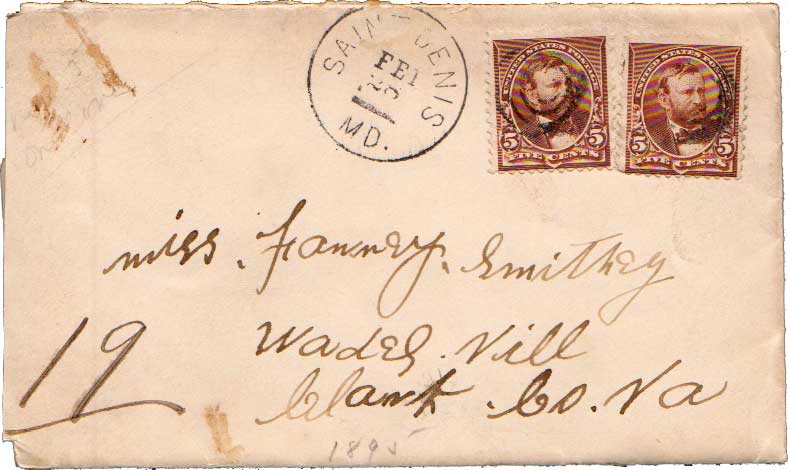 SAINT DENIS
FEB
MD.
UNITED STATES POSTAGE
5 5
FIVE CENTS
UNITED STATES POSTAGE
5 5
FIVE CENTS
miss. Fanney. Smithey
19
Wades. Vill
Clark. Co. Va
1895